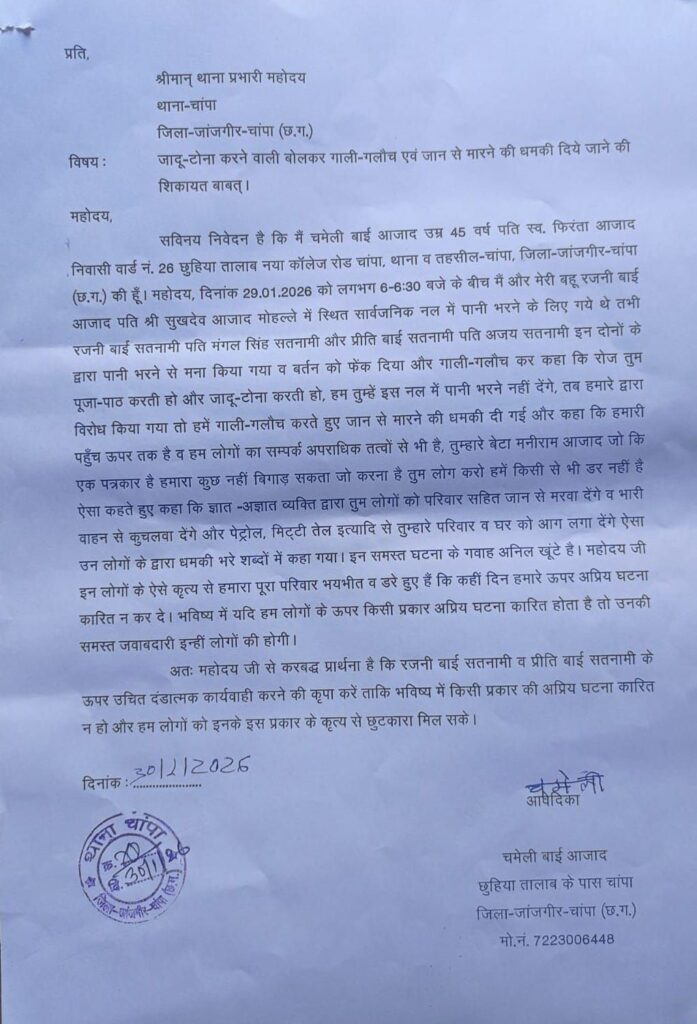 प्रति,
श्रीमान् थाना प्रभारी महोदय
थाना-चांपा
जिला-जांजगीर-चांपा (छ.ग.)
विषय : जादू-टोना करने वाली बोलकर गाली-गलौच एवं जान से मारने की धमकी दिये जाने की
शिकायत बाबत्।
महोदय,
सविनय निवेदन है कि मैं चमेली बाई आजाद उम्र 45 वर्ष पति स्व. फिरंता आजाद
निवासी वार्ड नं. 26 छुहिया तालाब नया कॉलेज रोड चांपा, थाना व तहसील-चांपा, जिला-जांजगीर-चांपा
(छ.ग.) की हूँ। महोदय, दिनांक 29.01.2026 को लगभग 6-6:30 बजे के बीच मैं और मेरी बहू रजनी बाई
आजाद पति श्री सुखदेव आजाद मोहल्ले में स्थित सार्वजनिक नल में पानी भरने के लिए गये थे तभी
रजनी बाई सतनामी पति मंगल सिंह सतनामी और प्रीति बाई सतनामी पति अजय सतनामी इन दोनों के
द्वारा पानी भरने से मना किया गया व बर्तन को फेंक दिया और गाली-गलौच कर कहा कि रोज तुम
पूजा-पाठ करती हो और जादू-टोना करती हो, हम तुम्हें इस नल में पानी भरने नहीं देंगे, तब हमारे द्वारा
विरोध किया गया तो हमें गाली-गलौच करते हुए जान से मारने की धमकी दी गई और कहा कि हमारी
पहुँच ऊपर तक है व हम लोगों का सम्पर्क अपराधिक तत्वों से भी है, तुम्हारे बेटा मनीराम आजाद जो कि
एक पत्रकार है हमारा कुछ नहीं बिगाड़ सकता जो करना है तुम लोग करो हमें किसी से भी डर नहीं है
ऐसा कहते हुए कहा कि ज्ञात -अज्ञात व्यक्ति द्वारा तुम लोगों को परिवार सहित जान से मरवा देंगे व भारी
वाहन से कुचलवा देंगे और पेट्रोल, मिट्टी तेल इत्यादि से तुम्हारे परिवार व घर को आग लगा देंगे ऐसा
उन लोगों के द्वारा धमकी भरे शब्दों में कहा गया। इन समस्त घटना के गवाह अनिल खूंटे है। महोदय जी
इन लोगों के ऐसे कृत्य से हमारा पूरा परिवार भयभीत व डरे हुए हैं कि कहीं दिन हमारे ऊपर अप्रिय घटना
कारित न कर दे। भविष्य में यदि हम लोगों के ऊपर किसी प्रकार अप्रिय घटना कारित होता है तो उनकी
समस्त जवाबदारी इन्हीं लोगों की होगी।
अतः महोदय जी से करबद्ध प्रार्थना है कि रजनी बाई सतनामी व प्रीति बाई सतनामी के
ऊपर उचित दंडात्मक कार्यवाही करने की कृपा करें ताकि भविष्य में किसी प्रकार की अप्रिय घटना कारित
न हो और हम लोगों को इनके इस प्रकार के कृत्य से छुटकारा मिल सके।
दिनांक : 30/1/2026
चमेली
आवेदिका
थाना चांपा
क्र. 20
दि. 30/1/26
जिला-जांजगीर-चांपा (छ.ग.)
चमेली बाई आजाद
छुहिया तालाब के पास चांपा
जिला-जांजगीर-चांपा (छ.ग.)
मो.नं. 7223006448